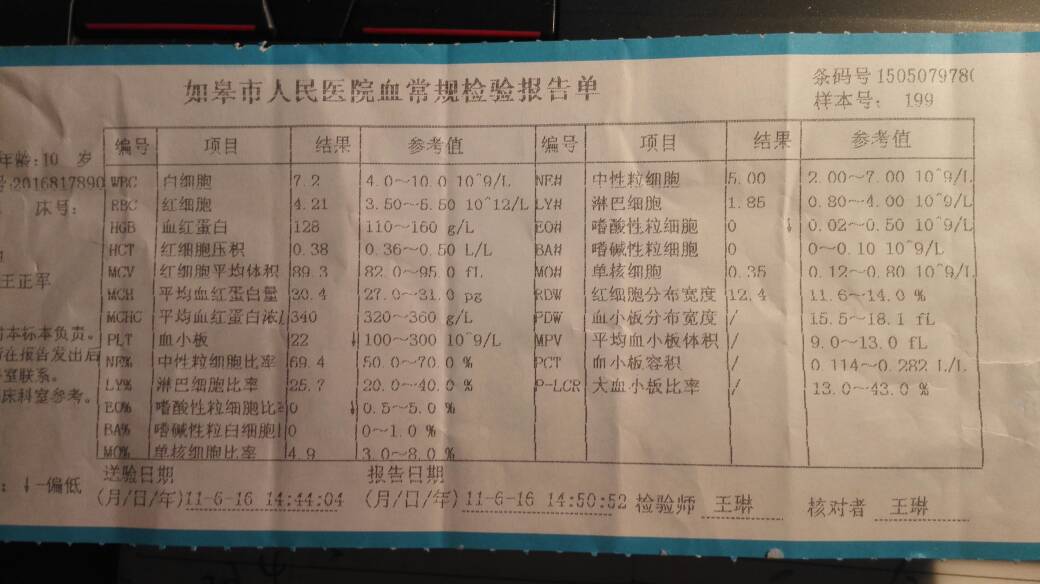 如皋市人民医院血常规检验报告单
条码号 150507978
样本号: 199
年龄:10 岁
号:2016817890
床号:
王正军
对本标本负责。
所在报告发出后
室联系。
床科室参考。
: ↓-偏低
编号 项目 结果 参考值 编号 项目 结果 参考值
WBC 白细胞 7.2 4.0～10.0 10^9/L NE# 中性粒细胞 5.00 2.00～7.00 10^9/L
RBC 红细胞 4.21 3.50～5.50 10^12/L LY# 淋巴细胞 1.85 0.80～4.00 10^9/L
HGB 血红蛋白 128 110～160 g/L EO# 嗜酸性粒细胞 0 ↓ 0.02～0.50 10^9/L
HCT 红细胞压积 0.38 0.36～0.50 L/L BA# 嗜碱性粒细胞 0 0～0.10 10^9/L
MCV 红细胞平均体积 89.3 82.0～95.0 fL MO# 单核细胞 0.35 0.12～0.80 10^9/L
MCH 平均血红蛋白量 30.4 27.0～31.0 pg RDW 红细胞分布宽度 12.4 11.6～14.0 %
MCHC 平均血红蛋白浓 340 320～360 g/L PDW 血小板分布宽度 / 15.5～18.1 fL
PLT 血小板 22 ↓ 100～300 10^9/L MPV 平均血小板体积 / 9.0～13.0 fL
NE% 中性粒细胞比率 69.4 50.0～70.0 % PCT 血小板容积 / 0.114～0.282 L/L
LY% 淋巴细胞比率 25.7 20.0～40.0 % P-LCR 大血小板比率 / 13.0～43.0 %
EO% 嗜酸性粒细胞比 0 ↓ 0.5～5.0 %
BA% 嗜碱性粒白细胞 0 0～1.0 %
MO% 单核细胞比率 4.9 3.0～8.0 %
送验日期 报告日期
(月/日/年) 11-6-16 14:44:04 (月/日/年) 11-6-16 14:50:52 检验师 王琳 核对者 王琳